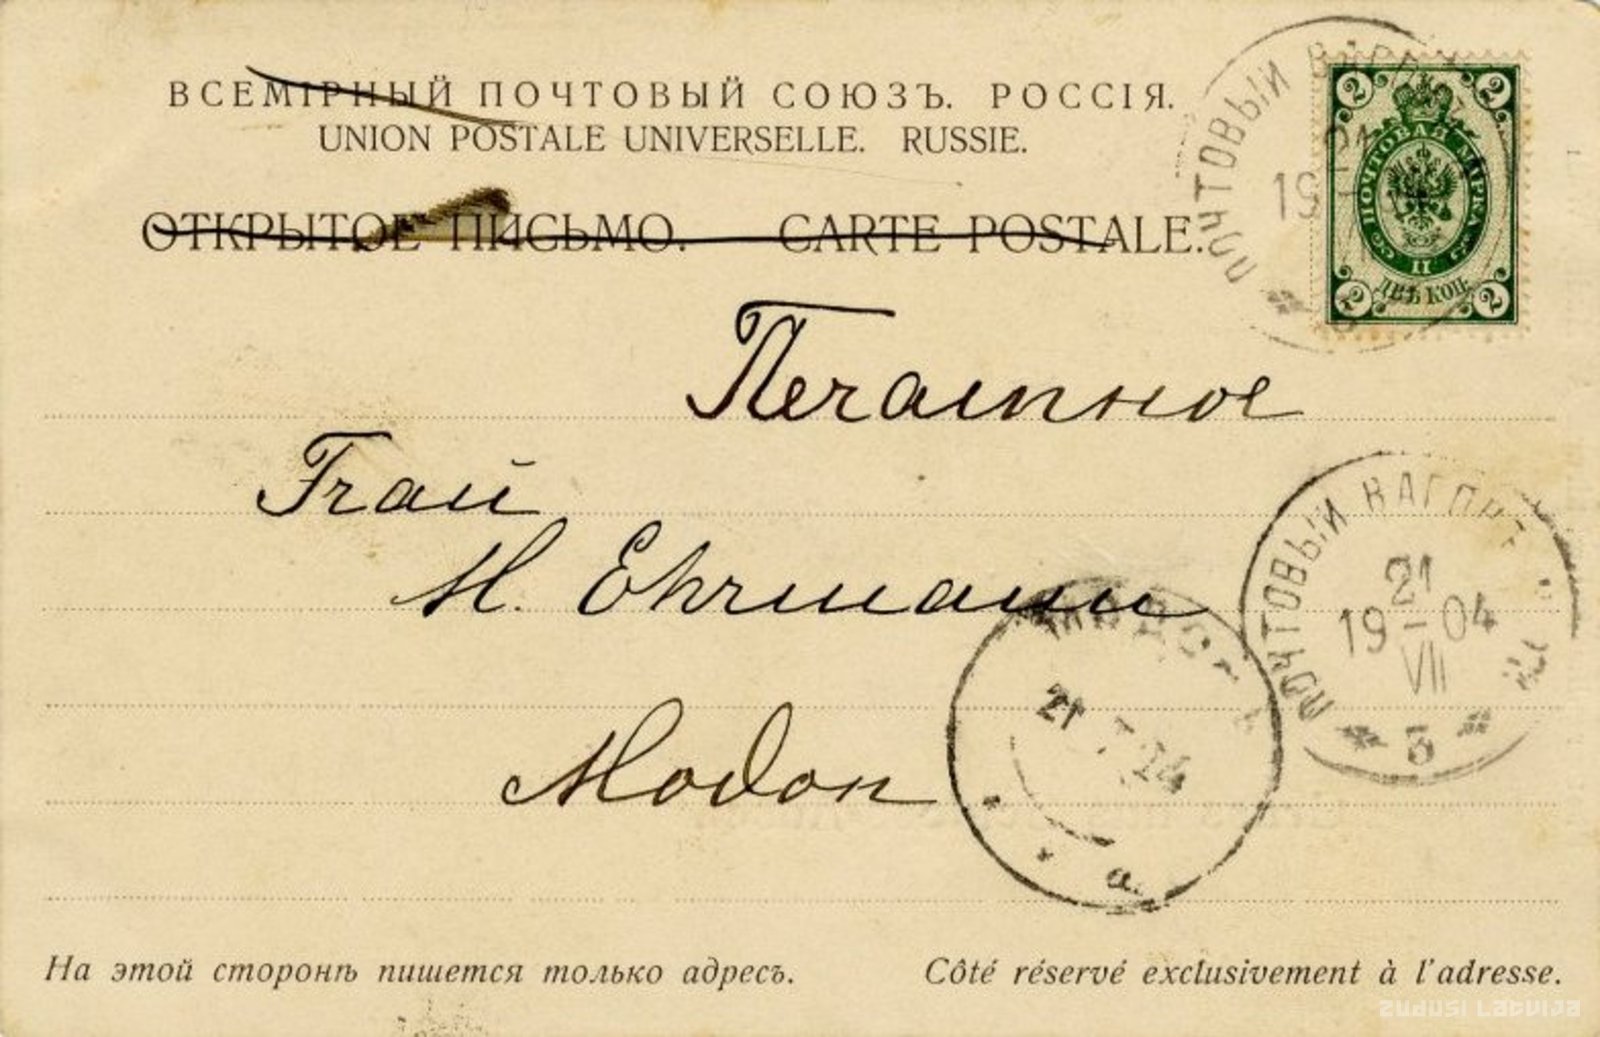 ВСЕМІРНЫЙ ПОЧТОВЫЙ СОЮЗЪ. РОССІЯ.
UNION POSTALE UNIVERSELLE. RUSSIE.
ОТКРЫТОЕ ПИСЬМО. CARTE POSTALE.
ПОЧТОВЫЙ ВАГ
19
2 2
ПОЧТОВАЯ МАРКА
II
ДВѢ КОП.
2 2
Печатное
Frau
H. Ehrmann
Modon
ПОЧТОВЫЙ ВАГОНЪ
21
19-04
VII
* 3 *
21
a
На этой сторонѣ пишется только адресъ.
Côté réservé exclusivement à l'adresse.
zudusi Latvija